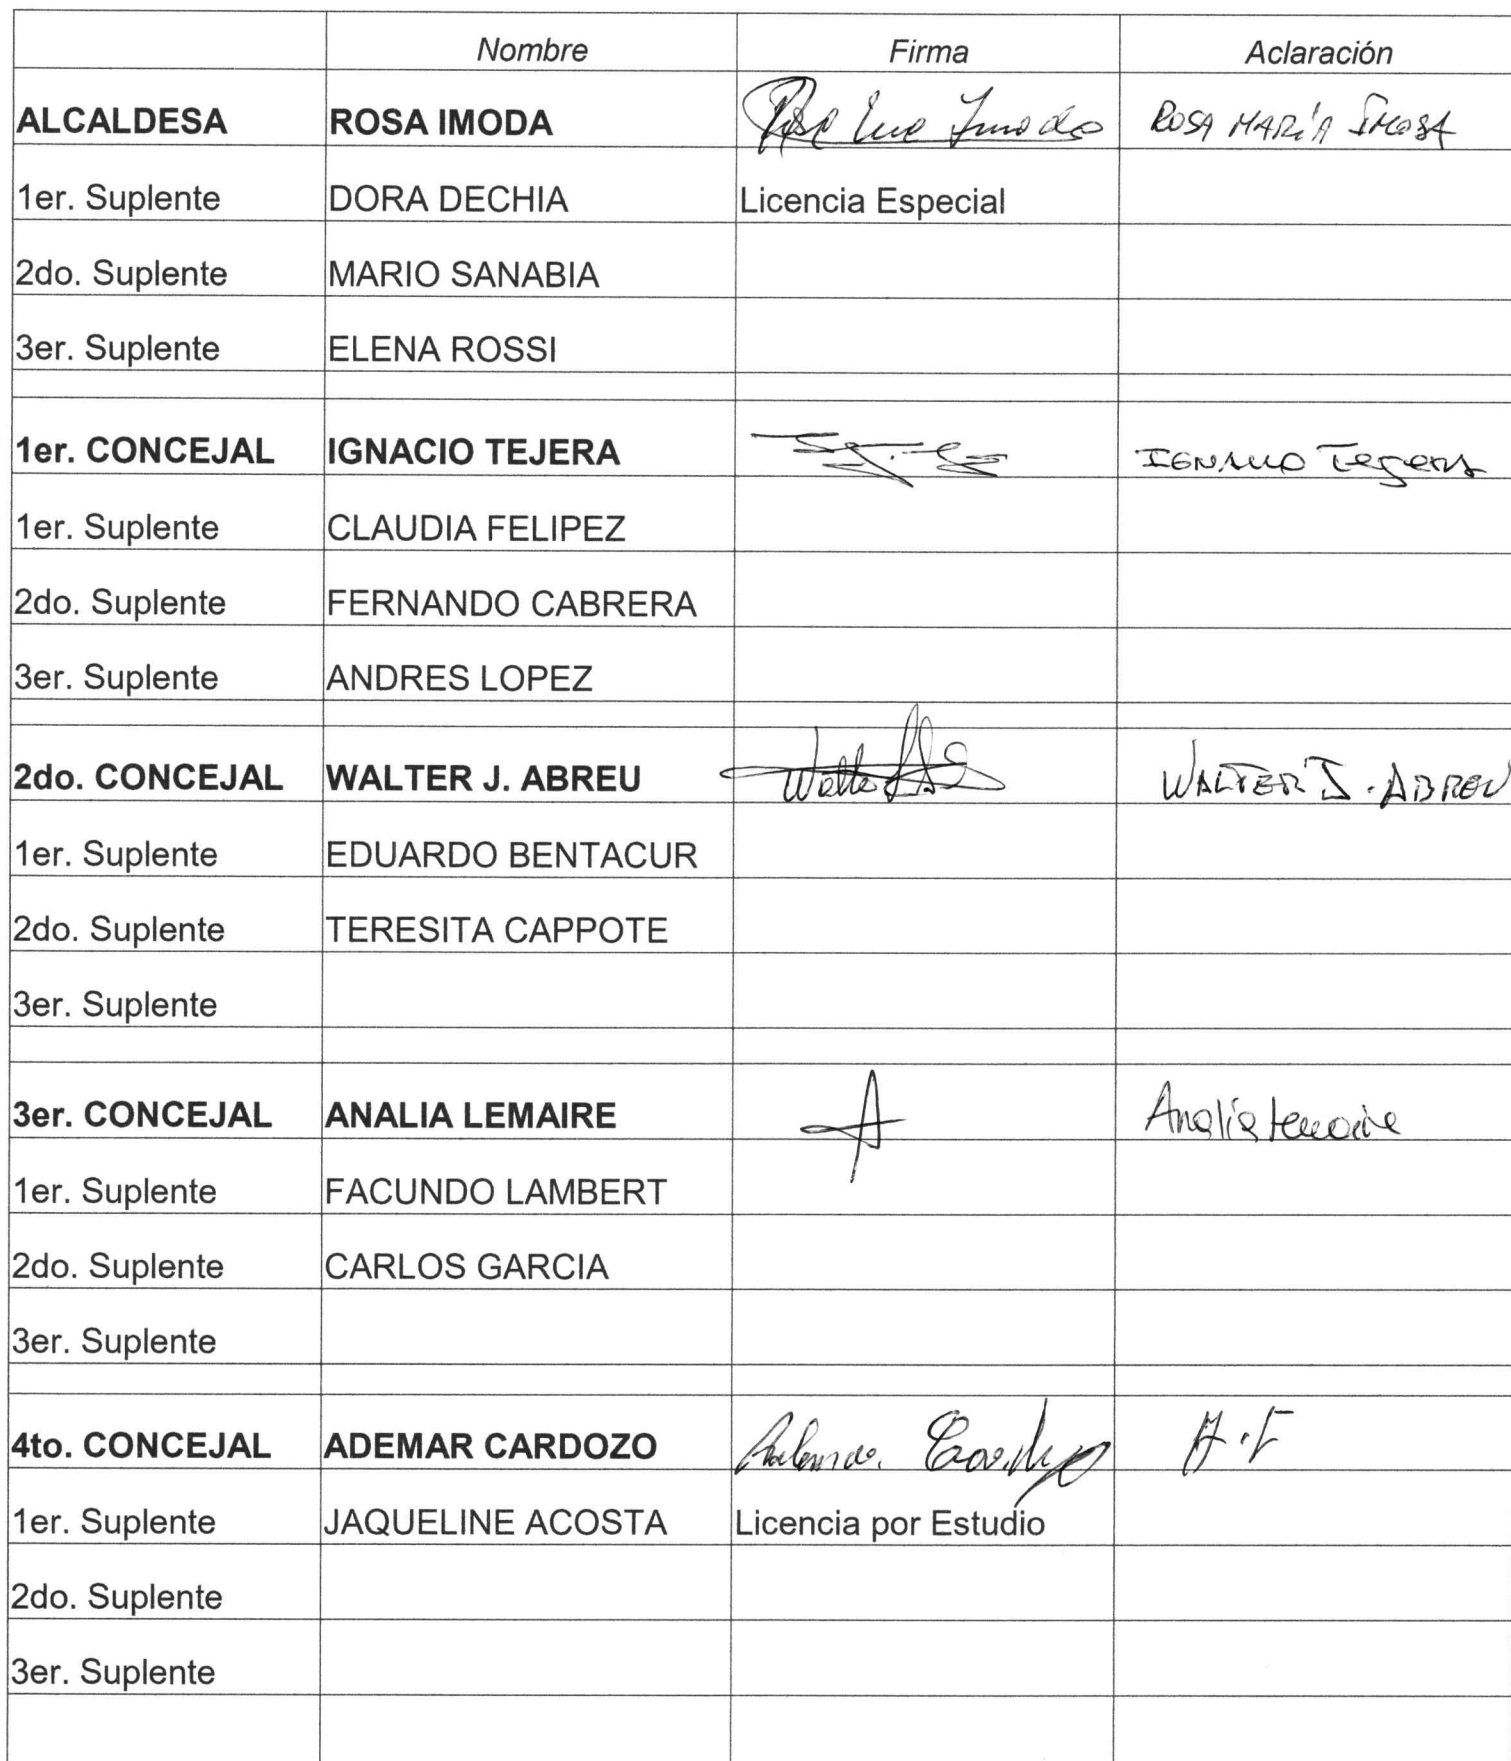 Nombre Firma Aclaración
ALCALDESA ROSA IMODA ROSA MARÍA IMODA
1er. Suplente DORA DECHIA Licencia Especial
2do. Suplente MARIO SANABIA
3er. Suplente ELENA ROSSI
1er. CONCEJAL IGNACIO TEJERA IGNACIO Tejera
1er. Suplente CLAUDIA FELIPEZ
2do. Suplente FERNANDO CABRERA
3er. Suplente ANDRES LOPEZ
2do. CONCEJAL WALTER J. ABREU Walter WALTER J. ABREU
1er. Suplente EDUARDO BENTACUR
2do. Suplente TERESITA CAPPOTE
3er. Suplente
3er. CONCEJAL ANALIA LEMAIRE A Analía Lemaire
1er. Suplente FACUNDO LAMBERT
2do. Suplente CARLOS GARCIA
3er. Suplente
4to. CONCEJAL ADEMAR CARDOZO
1er. Suplente JAQUELINE ACOSTA Licencia por Estudio
2do. Suplente
3er. Suplente